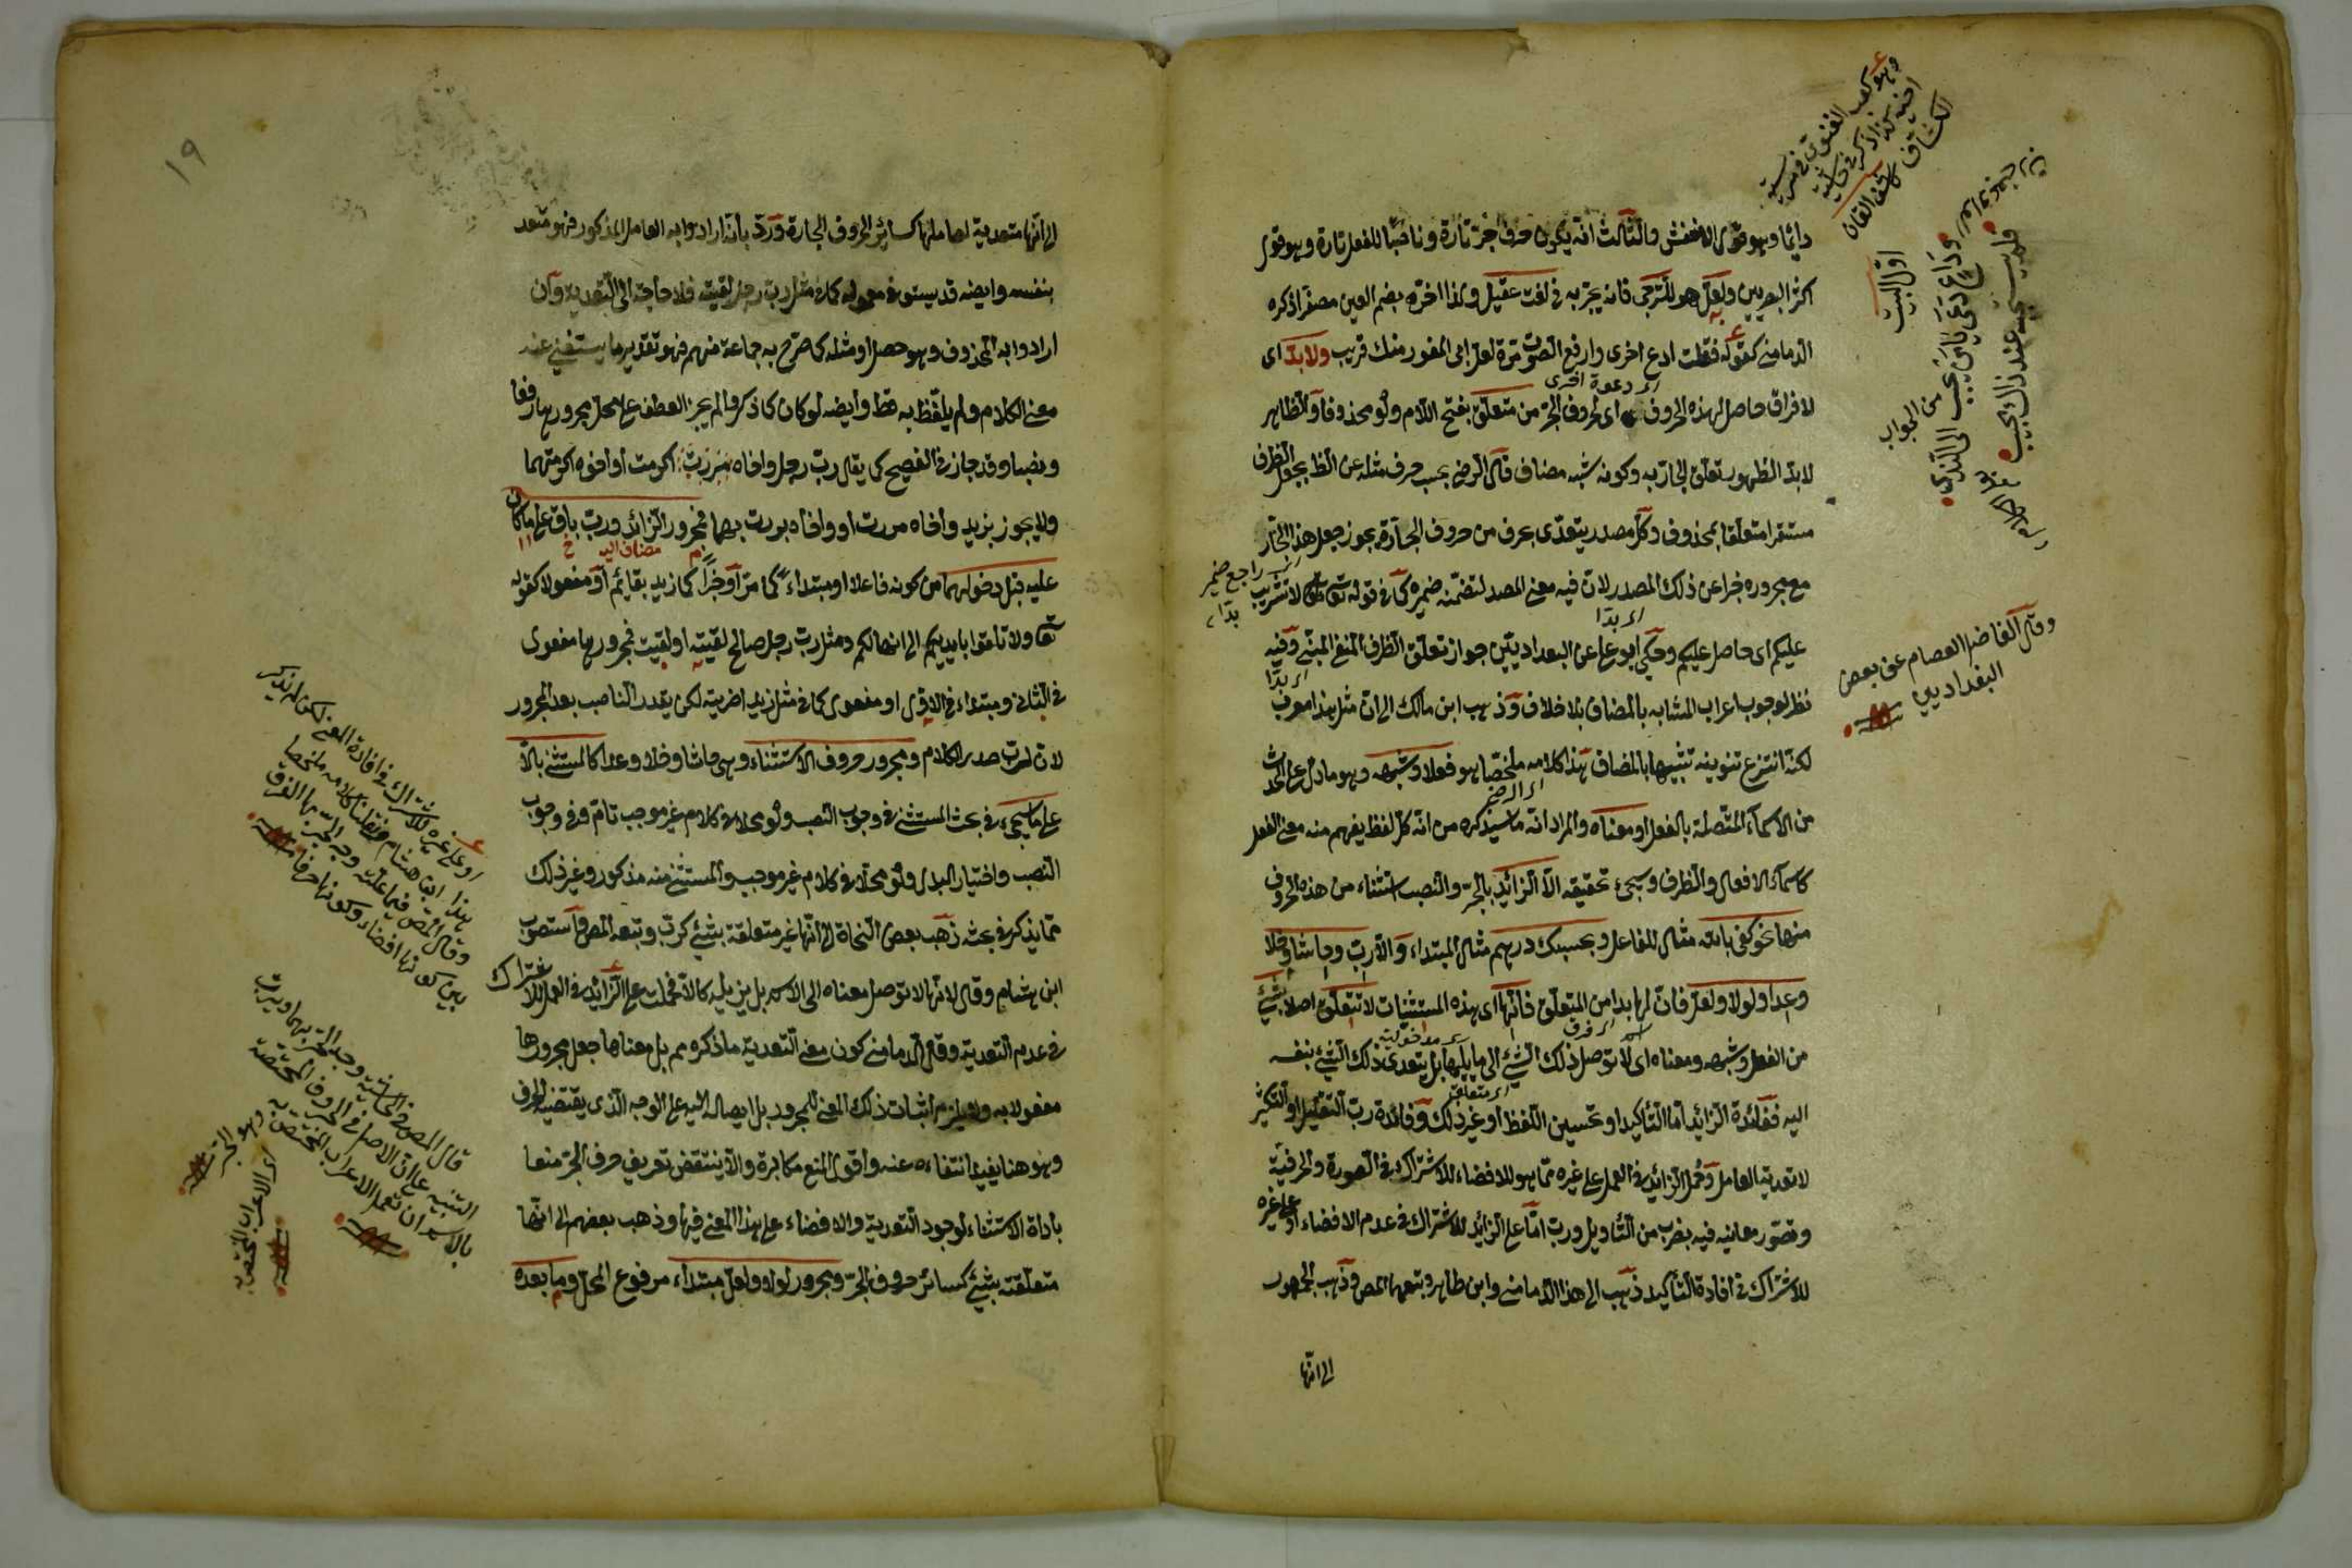 دائما وهو قول الاخفش والثالث انه يكون حرف جر تارة وناصبا للفعل تارة وهو قول
اكثر البصريين ولعل هو للترجى فانه يجر به فى لغة عقيل ولذا اخره بضم العين مصغرا ذكره
الدمامينى كقوله فقلت ادع اخرى وارفع الصوت مرة لعل ابى المغور منك قريب ولا بد اى
لا فراق حاصل لهذه الحروف اى لحروف الجر من متعلق بفتح اللام ولو محذوفا والظاهر
لا بد الظهور تعلق الجار به وكونه شبه مضاف قال الرضى بحسب حرف مثله عن الظ بجعل الظرف
مستقرا متعلقا بمحذوف وكل مصدر يتعدى بحرف من حروف الجارة يجوز جعل هذا الجار
مع مجروره خبرا عن ذلك المصدر لان فيه معنى المصدر لتضمنه ضميره كما فى قوله تعالى لا تثريب
عليكم اى حاصل عليكم وحكى ابو على عن البغداديين جواز تعلق الظرف المنفى المبنى وفيه
نظر لوجوب اعراب المشابه بالمضاف بلا خلاف وذهب ابن مالك الى ان مثل هذا معرب
لكنه انتزع تنوينه تشبيها بالمضاف هذا كلامه ملخصا هو فعل او شبهه وهو ما دل على الحدث
من الاسماء المتصلة بالفعل او معناه والمراد انه ما سيذكره من انه كل لفظ يفهم منه معنى الفعل
كاسماء الافعال والظرف وسيجئ تحقيقه الا الزائد بالجر والنصب استثناء من هذه الحروف
منها نحو كفى بالله مثال للفاعل وبحسبك درهم مثال المبتداء والا رب وحاشا وخلا
وعدا ولولا ولعل فان لها بدا من المتعلق فانها اى هذه المستثنيات لا تتعلق اصلا بشئ
من الفعل وشبهه ومعناه اى لا توصل ذلك الشئ الى ما يليها بل يتعدى ذلك الشئ بنفسه
اليه ففائدة الزائد اما التأكيد او تحسين اللفظ او غير ذلك وفائدة رب التقليل او التكثير
لا تعدية العامل وحمل الزائد فى العمل على غيره مما هو للافضاء للاشتراك فى الصورة والحرفية
وتصور معانيه فيه بضرب من التأويل ورب اما على الزائد للاشتراك فى عدم الافضاء او على غيره
للاشتراك فى افادة التأكيد ذهب الى هذا الدمامينى وابن طاهر وتبعهما المص وذهب الجمهور
الى انها
اى دعوة اخرى
اى بدا
اى بدا
اى الرضى
اول البيت
وداع دعى يا من يجيب الى الندى
فلم يستجبه عند ذاك مجيب
من الجواب
وقال الفاضل العصام عن بعض
البغداديين
١٩
الى انها متعدية لعاملها كسائر الحروف الجارة ورد بان ارادوا به العامل المذكور فهو متعد
بنفسه وايضه قد يستوفى معموله كما فى مثل رب رجل لقيته فلا حاجة الى التعدية وان
ارادوا به المحذوف وهو حصل او مثله كما صرح به جماعة منهم فهو تقدير ما يستغنى عند
معنى الكلام ولم يلفظ به قط وايضه لو كان كما ذكر والم يجز العطف على محل مجرورها رفعا
ونصبا وقد جاز فى الفصيح كى يقال رب رجل واخاه اكرمت او اخوه اكرمتهما
ولا يجوز بزيد واخاه مررت او واخاه مررت بهما فمجرور الزائد ورب باق على ما كان
عليه قبل دخولهما من كونه فاعلا او مبتداء كما مر او خبرا كما زيد بقائم او مفعولا كقوله
تعا ولا تلقوا بايديكم الى التهلكة ومثل رب رجل صالح لقيته او لقيت فمجرورها مفعول
فى الثانى ومبتداء فى الاول او مفعول كما فى مثل زيدا ضربته لكن يقدر الناصب بعد المجرور
لان لرب صدر الكلام ومجرور حروف الاستثناء وهى حاشا وخلا وعدا كالمستثنى بالا
على ما سيجئ فى بحث المستثنى فى وجوب النصب ولو محلا فى كلام غير موجب تام وفى وجوب
النصب واختيار البدل ولو محلا فى كلام غير موجب والمستثنى منه مذكور وغير ذلك
مما يذكر فى بحثه ذهب بعض النحاة الى انها غير متعلقة بشئ كرب وتبعه المص واستصوب
ابن هشام وقال لانها لا توصل معناه الى الاسم بل يزيله كالا فحملت على الزائد فى العمل للاشتراك
فى عدم التعدية وقال الدمامينى كون معنى التعدية ما ذكره مم بل معناها جعل مجرورها
مفعولا به ولا يلزم اثبات ذلك المعنى للمجرور بل ايصاله اليه على الوجه الذى يقتضيه الحرف
وهو هنا يفيد انتفاءه عنه واقول المنع مكابرة والا ينتقض تعريف حرف الجر منعا
باداة الاستثناء لوجود التعدية والافضاء على هذا المعنى فيها وذهب بعضهم الى انها
متعلقة بشئ كسائر حروف الجر ومجرور لولا ولعل مبتداء مرفوع المحل وما بعده
مضاف اليه
او على غيره للاشتراك فى افادة المعنى لكن لم يذكر
هذا ابن هشام ونقلنا كلامه ملخصا
وقال المص فيما علقه وجه الجر بها الفرق
بين كونها افضاء وكونها حرفا
قال المص فى الحاشية وجه الجر بهما ورب
التنبيه على ان الاصل فى الحروف المختصة
بالاسم ان تعمل الاعراب المختص به وهو الجر
اى الاعراب المختص